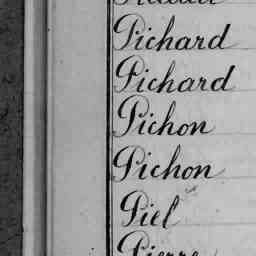 Pichard
Pichard
Pichon
Pichon
Piel
Pierre